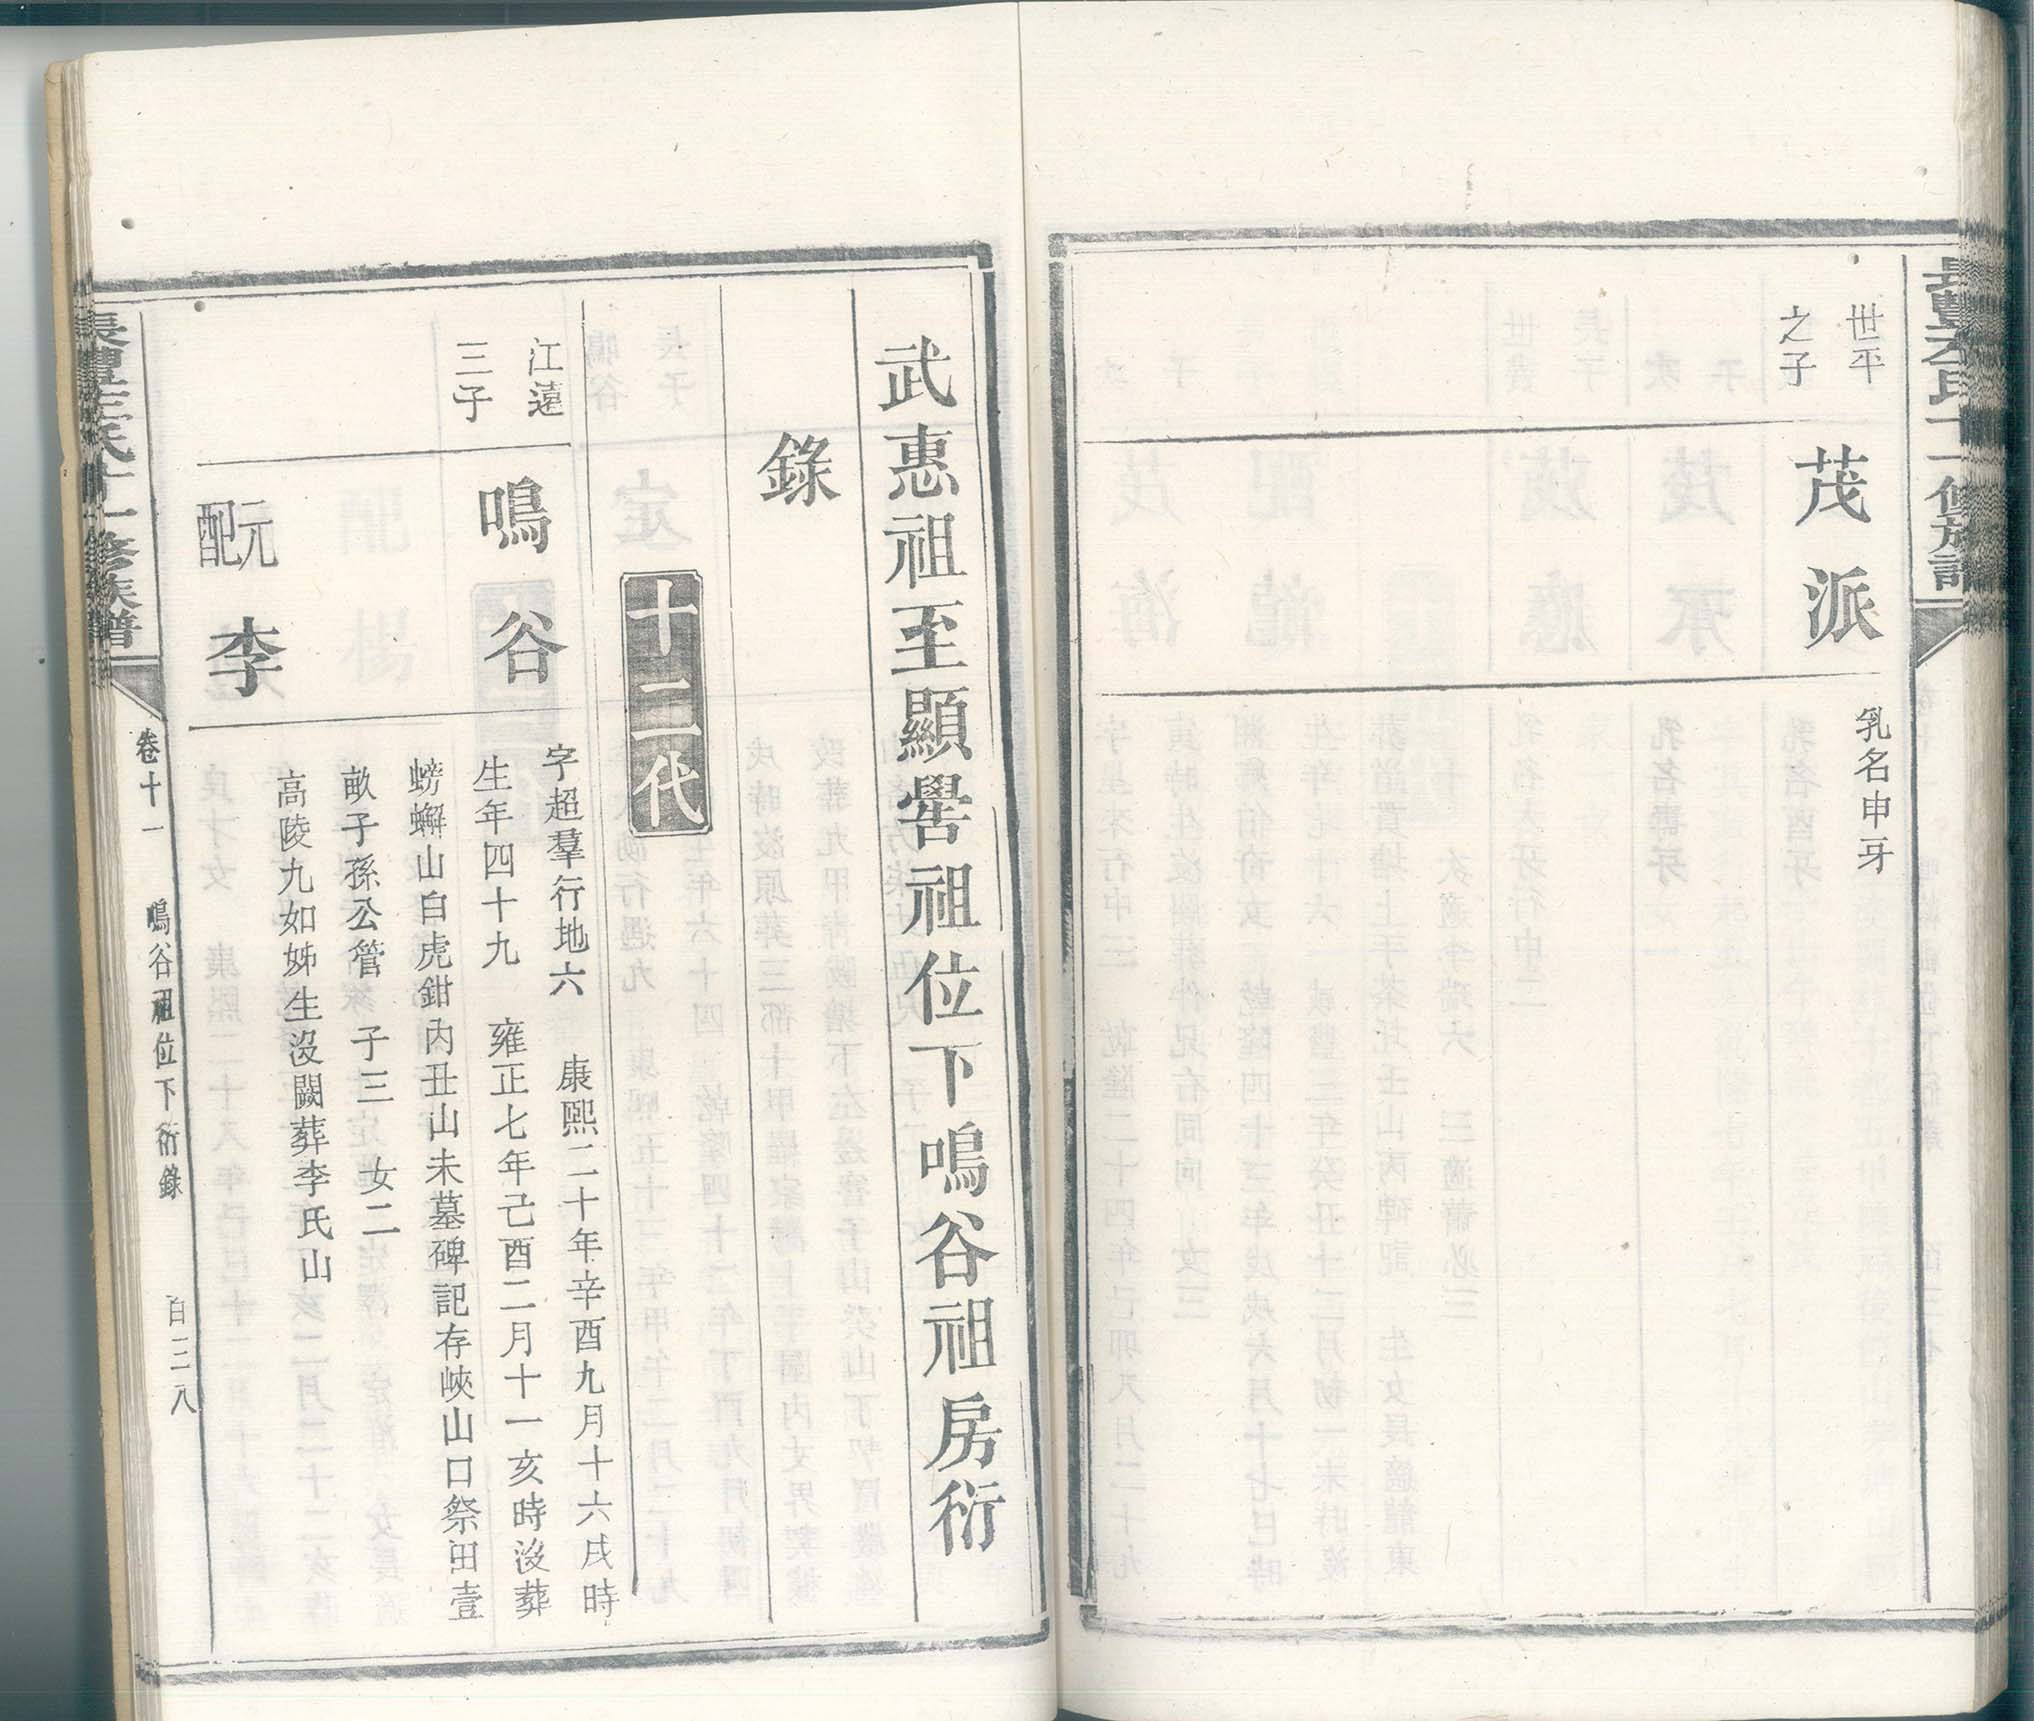 世平
之子
茂派
乳名申牙
武惠祖至顯譽祖位下鳴谷祖房衍
錄
十二代
江遠
三子
鳴谷
字超羣行地六　康熙二十年辛酉九月十六戌時
生年四十九　雍正七年己酉二月十一亥時沒葬
螃蠏山白虎鉗內丑山未墓碑記存峽山口祭田壹
畝子孫公管　子三　女二
元配
李
高陵九如姊生沒闕葬李氏山
氏十一修族譜
卷十一　鳴谷祖位下衍錄　百三八